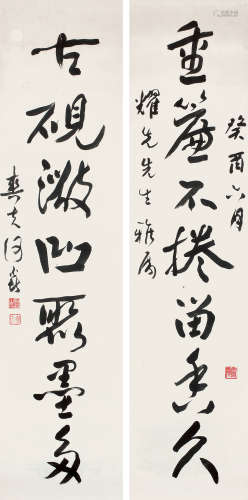 重簾不捲留香久
癸酉六月
耀先先生雅属
古硯微凹聚墨多
爽夫何